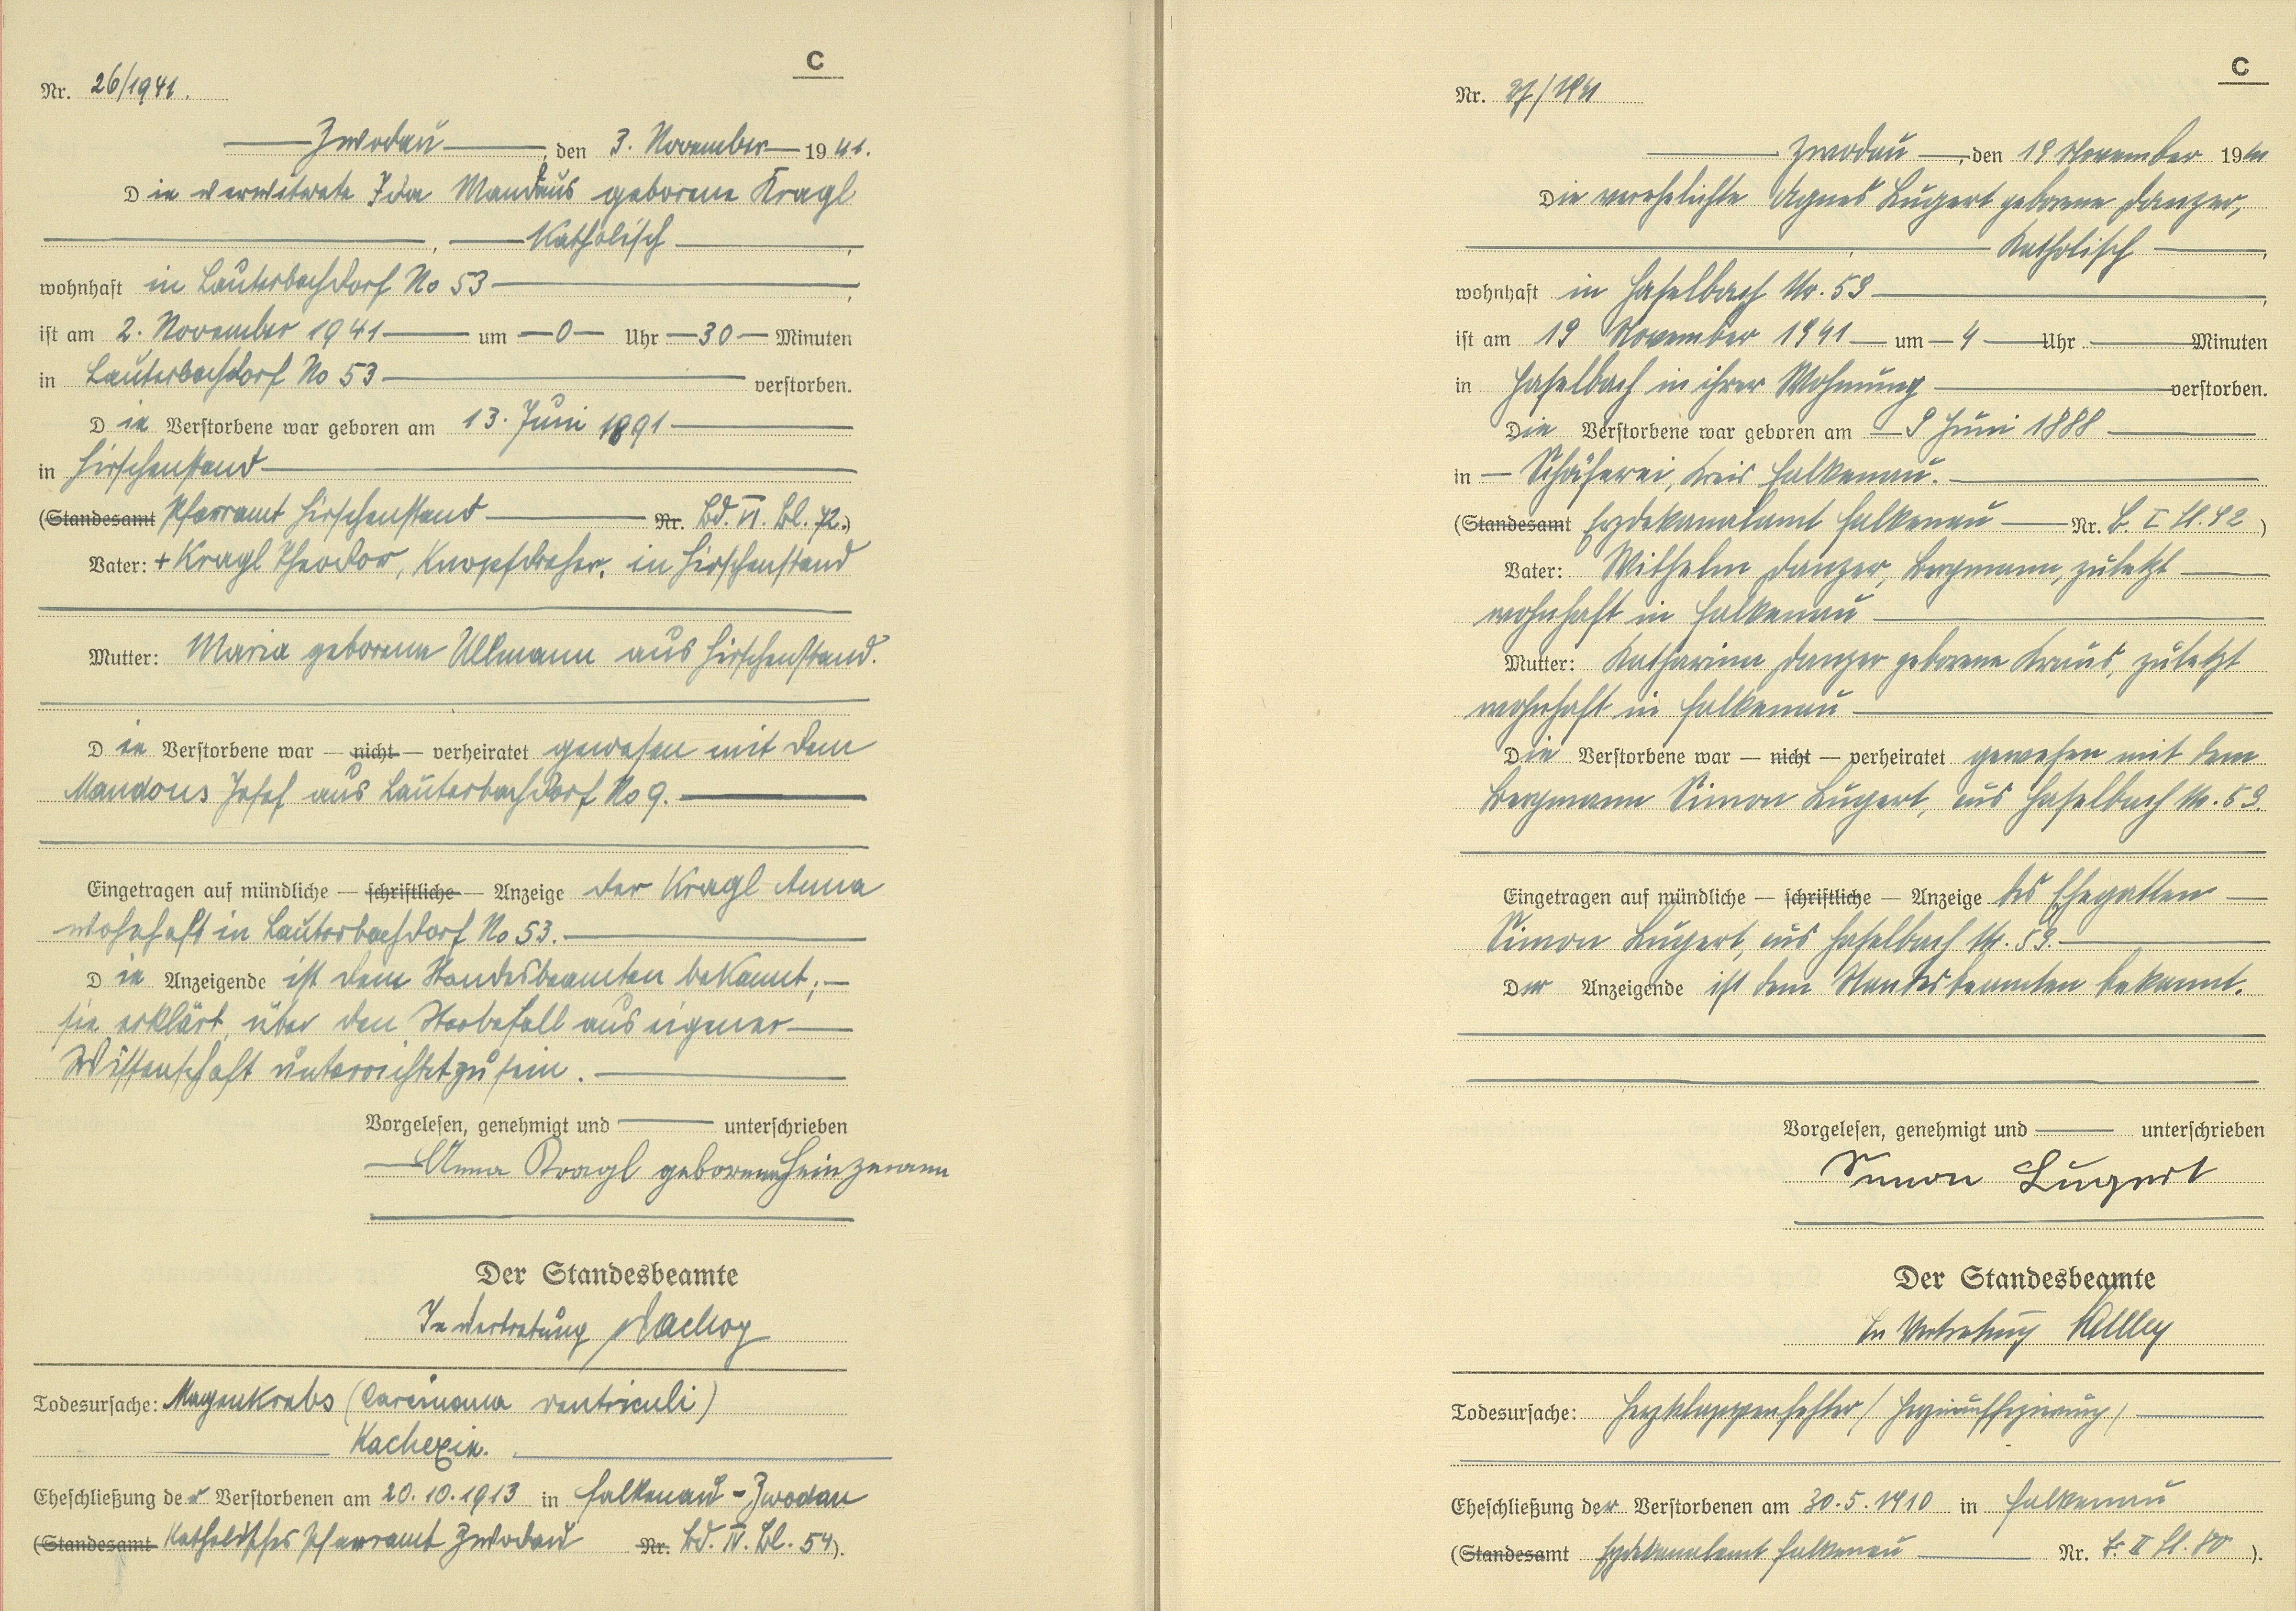 C
Nr. 26/1941.
Zwodau, den 3. November 1941.
Die verwitwete Ida Mandous geborene Kragl
, Katholisch,
wohnhaft in Lauterbachdorf No 53,
ist am 2. November 1941 um 0 Uhr 30 Minuten
in Lauterbachdorf No 53 verstorben.
Die Verstorbene war geboren am 13. Juni 1891
in Hirschenstand
(Standesamt Pfarramt Hirschenstand Nr. Bd. VI. Bl. 72.)
Vater: + Kragl Theodor, Knopfdreher, in Hirschenstand
Mutter: Maria geborene Ullmann aus Hirschenstand.
Die Verstorbene war — nicht — verheiratet gewesen mit dem
Mandous Josef aus Lauterbachdorf No 9.
Eingetragen auf mündliche — schriftliche — Anzeige der Kragl Anna
wohnhaft in Lauterbachdorf No 53.
Die Anzeigende ist dem Standesbeamten bekannt;
sie erklärt, über den Sterbefall aus eigener
Wissenschaft unterrichtet zu sein.
Vorgelesen, genehmigt und unterschrieben
Anna Kragl geborene Heinzmann
Der Standesbeamte
In Vertretung
Todesursache: Magenkrebs (Carcinoma ventriculi)
Kachexie.
Eheschließung der Verstorbenen am 20.10.1913 in Falkenau-Zwodau
(Standesamt Katholisches Pfarramt Zwodau Nr. Bd. IV. Bl. 54).
C
Nr. 27/1941
Zwodau, den 19 November 1941
Die verehelichte Agnes Lugert geborene Danzer,
Katholisch,
wohnhaft in Haselbach Nr. 59,
ist am 19 November 1941 um 4 Uhr Minuten
in Haselbach in ihrer Wohnung verstorben.
Die Verstorbene war geboren am 9 Juni 1888
in Schäferei, Kreis Falkenau.
(Standesamt Erzdekanalamt Falkenau Nr. B. I Bl. 42)
Vater: Wilhelm Danzer, Bergmann, zuletzt
wohnhaft in Falkenau
Mutter: Katharina Danzer geborene Kraus, zuletzt
wohnhaft in Falkenau
Die Verstorbene war — nicht — verheiratet gewesen mit dem
Bergmann Simon Lugert, aus Haselbach Nr. 59.
Eingetragen auf mündliche — schriftliche — Anzeige des Ehegatten
Simon Lugert, aus Haselbach Nr. 59.
Der Anzeigende ist dem Standesbeamten bekannt.
Vorgelesen, genehmigt und unterschrieben
Simon Lugert
Der Standesbeamte
In Vertretung
Todesursache: Herzklappenfehler
Eheschließung der Verstorbenen am 30.5.1910 in Falkenau
(Standesamt Erzdekanalamt Falkenau Nr. B. II Bl. 80).